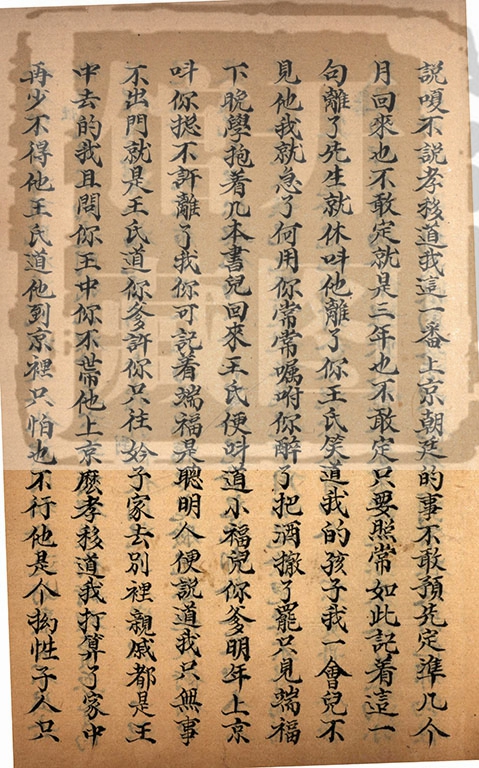 説嗄不説孝移道我這一番上京朝廷的事不敢預先定準几个
月回來也不敢定就是三年也不敢定只要照常如此記着這一
句離了先生就休呌他離了你王氏笑道我的孩子我一會兒不
見他我就急了何用你常常嘱咐你醉了把酒撤了罷只見端福
下晩學抱着几本書兒回來王氏便呌道小福兒你爹明年上京
呌你揔不許離了我你可記着端福是聰明人便説道我只無事
不出門就是王氏道你爹許你只往妗子家去别裡親戚都是王
中去的我且問你王中你不帶他上京麽孝移道我打算了家中
再少不得他王氏道他到京裡只怕也不行他是个拗性子人只